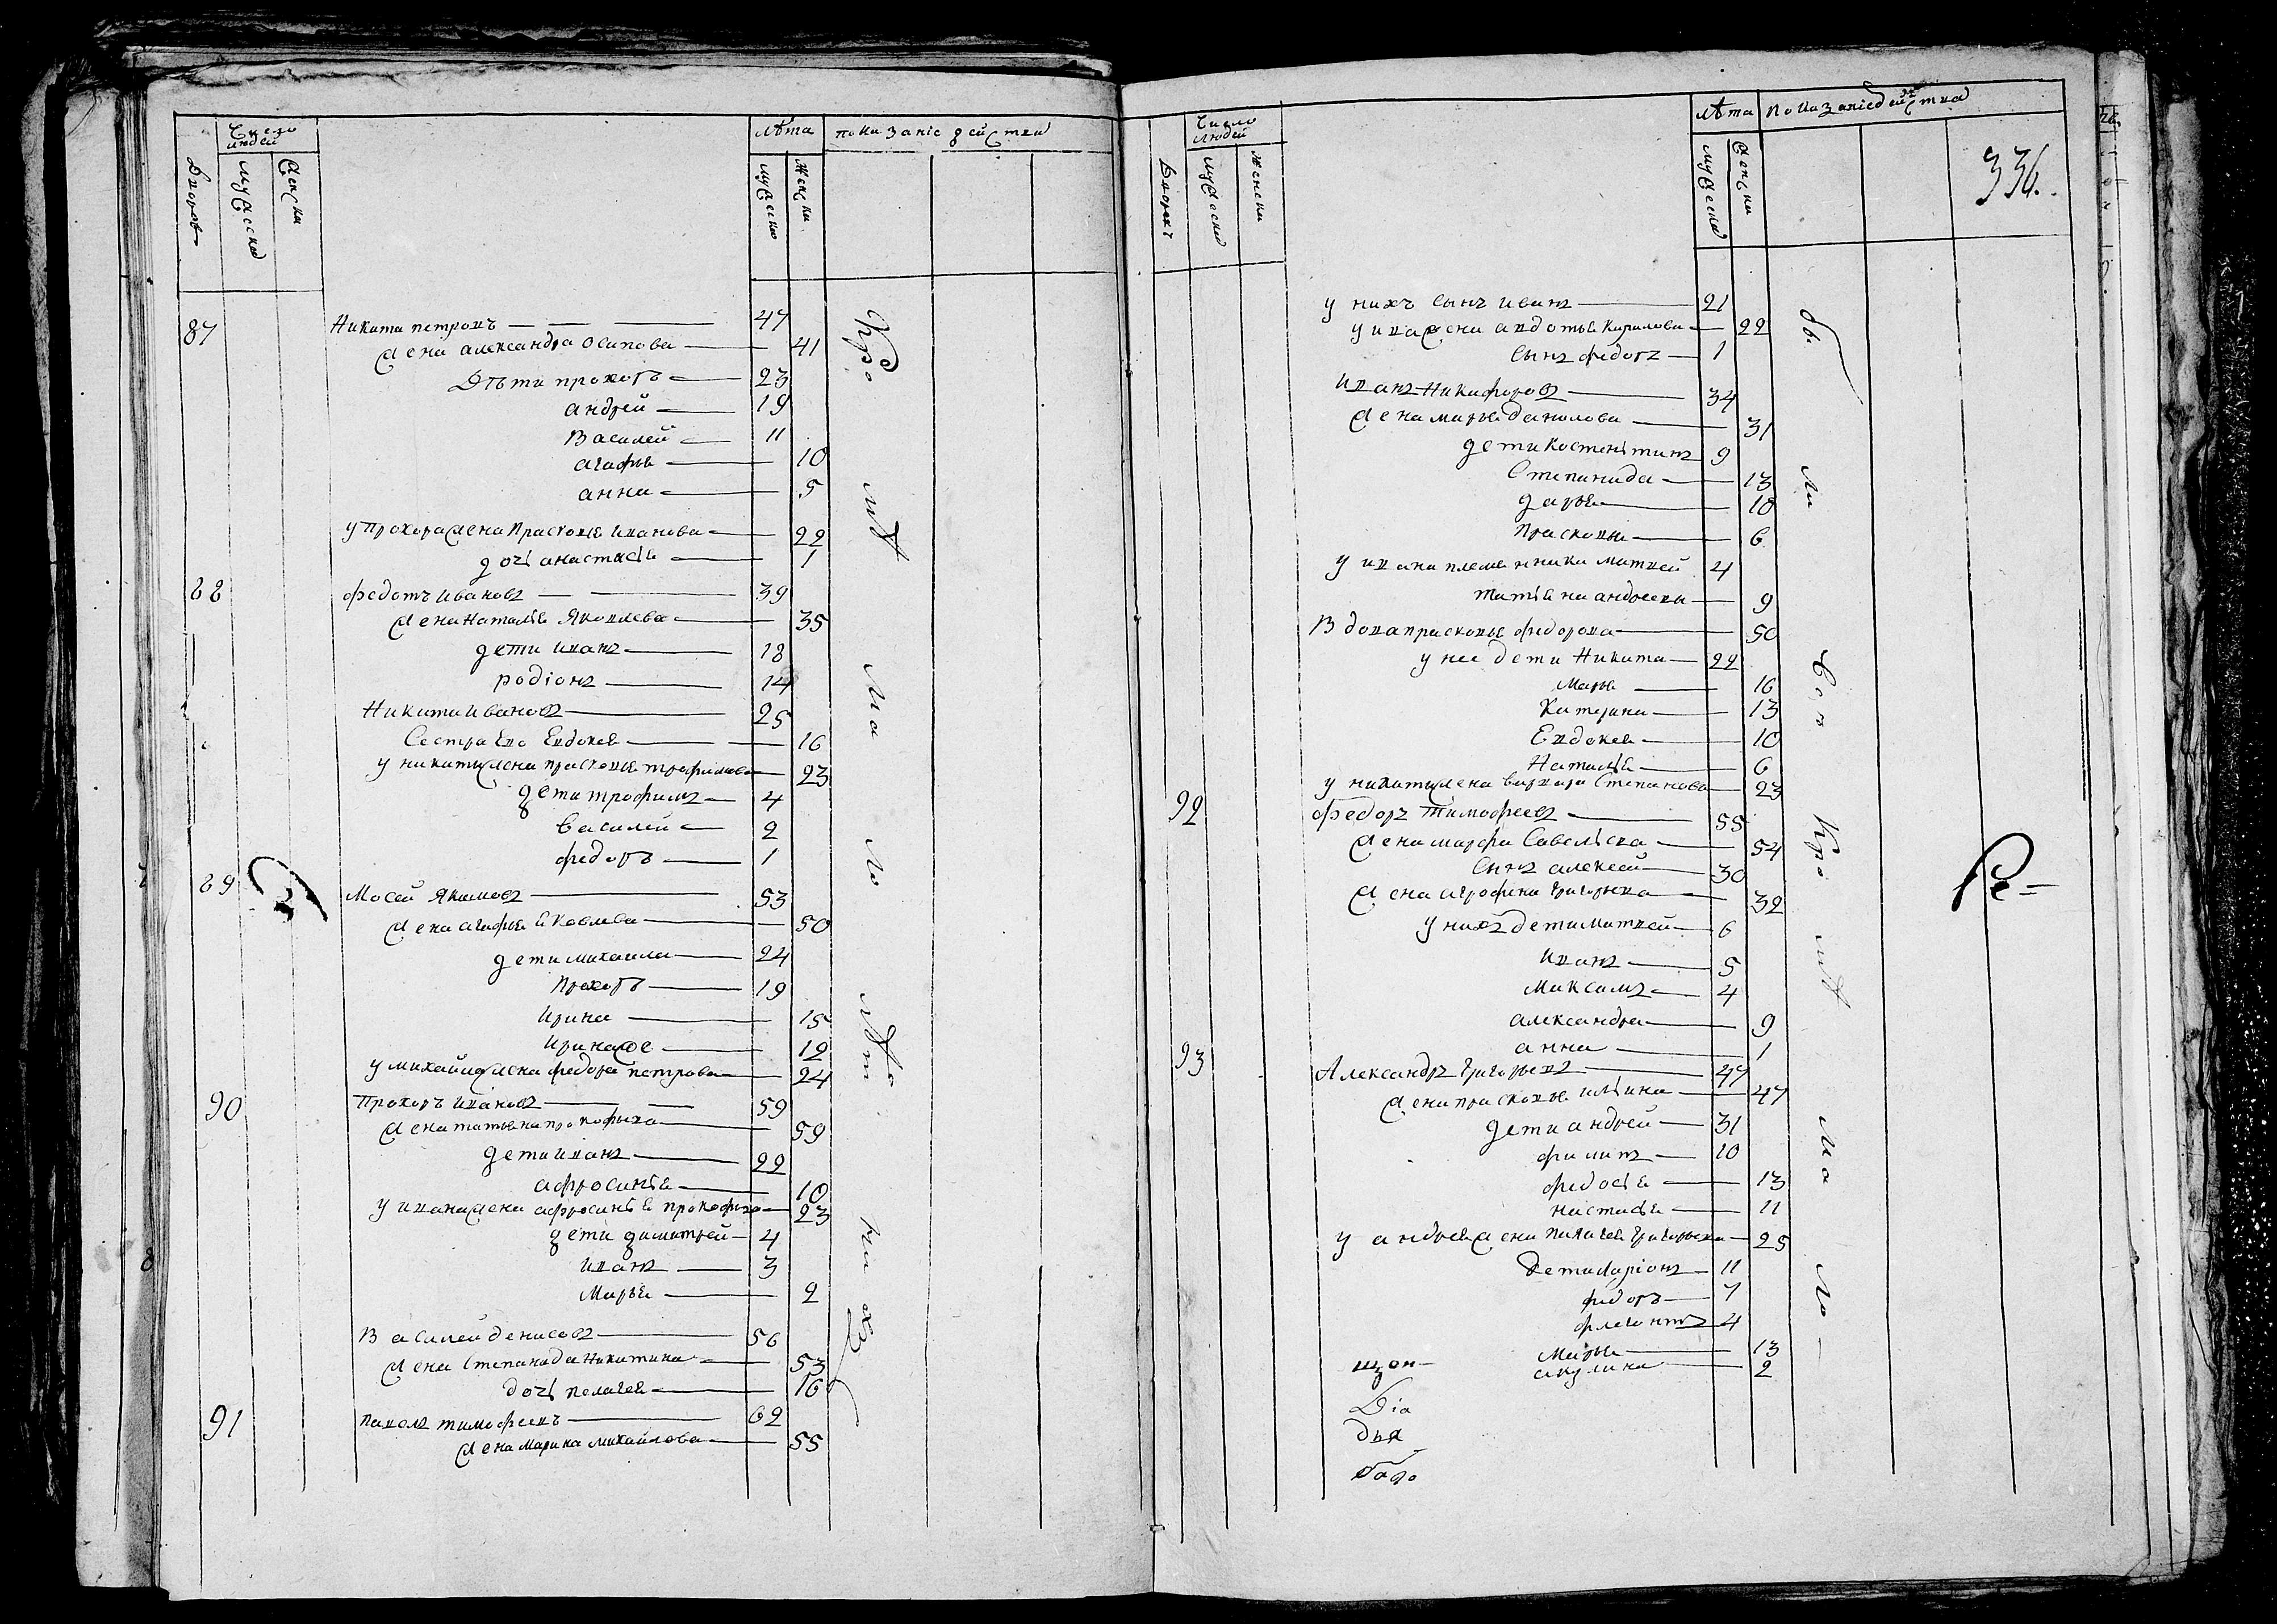 Число людей
лѣта
показание действи
Дворовъ
мужеска
женски
мужеска
женски
87 Никита петровъ 47
жена александра осипова 41
Дѣти прохоръ 23
андрей 19
Василей 11
агафья 10
анна 5
у прохора жена Прасковья иванова 22
дочь анастасья 1
88 федотъ ивановъ 39
жена наталья Яковлева 35
дети иванъ 18
родіонъ 14
Никита ивановъ 25
Сестра Ево Евдокея 16
у никиты жена прасковья трофимова 23
дети трофимъ 4
василей 2
федоръ 1
89 Мосей Якимовъ 53
жена агафья яковлева 50
дети михаила 24
прохоръ 19
ирина 15
ирина же 12
у михайлы жена федора петрова 24
90 Прохоръ ивановъ 59
жена татьяна прокофьева 59
дети иванъ 22
афросинья 10
у ивана жена афросинья прокофьева 23
дети димитрей 4
иванъ 3
марья 2
Василей денисовъ 56
жена Степанида Никитина 53
дочь пелагея 16
91 павелъ тимофеевъ 62
жена марина михайлова 55
Число людей
лѣта
показание действа
336.
Дворовъ
мужеска
женски
мужеска
женски
у нихъ сынъ иванъ 21
у ивана жена авдотья Кирилова 22
сынъ федоръ 1
иванъ Никифоровъ 34
жена марья данилова 31
дети костентинъ 9
Степанида 13
дарья 10
Прасковья 6
у ивана племянники матвей 4
татьяна андреева 9
Вдова прасковья федорова 50
у нее дети Никита 22
Марья 16
Катерина 13
Евдокея 10
Наталья 6
у никиты жена варвара Степанова 23
92 федоръ Тимофеевъ 55
жена марфа Савельева 54
сынъ алексей 30
жена агрофена григорьева 32
у нихъ дети матвей 6
иванъ 5
Максимъ 4
александра 9
анна 1
93 Александръ григорьевъ 47
жена прасковья ильина 47
дети андрей 31
филипъ 10
федосья 13
настасья 11
у андрея жена пелагея григорьева 25
Дети ларіонъ 11
федоръ 7
флегонтъ 4
Марья 13
акулина 2
Діа